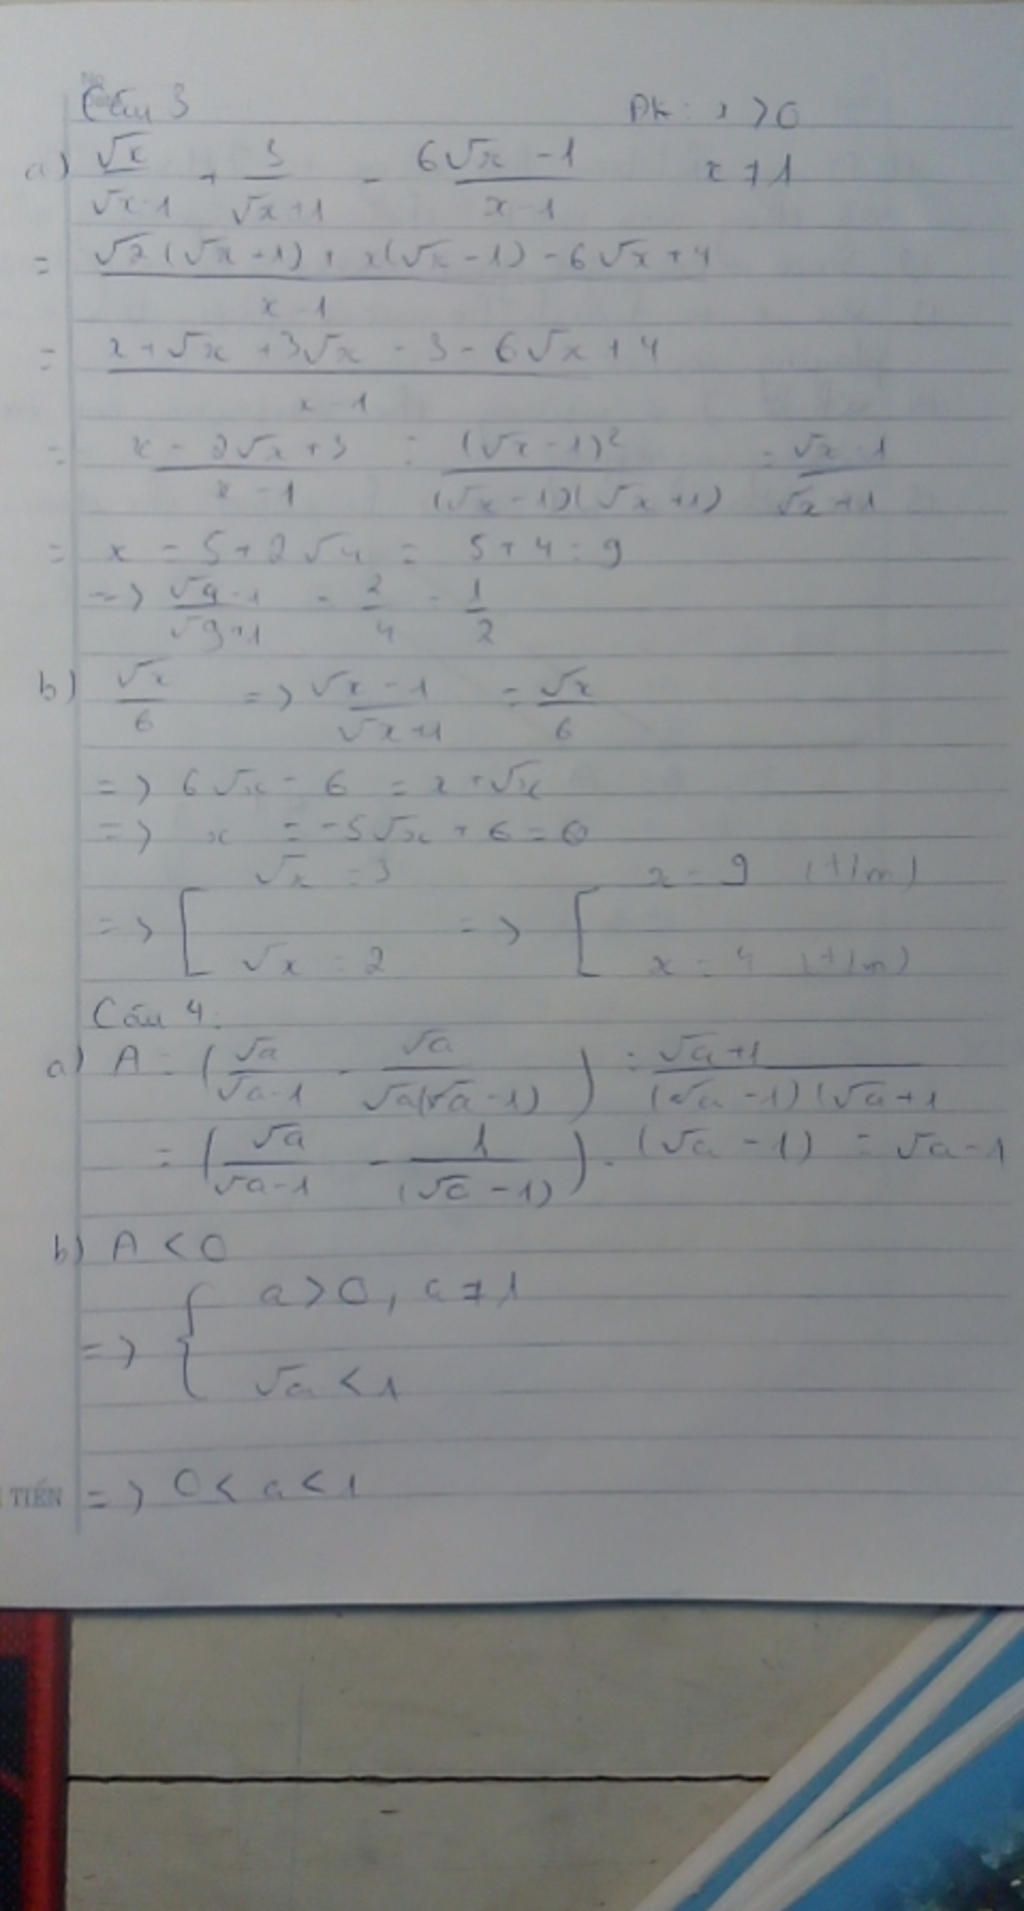 Câu 3 ĐK: x > 0
a) √x/(√x-1) + 3/(√x+1) - (6√x - 1)/(x-1) x ≠ 1
= (√x(√x+1) + x(√x-1) - 6√x + 4)/(x-1)
= (x + √x + 3√x - 3 - 6√x + 4)/(x-1)
= (x - 2√x + 3)/(x-1) = (√x-1)²/((√x-1)(√x+1)) = (√x-1)/(√x+1)
= x = 5 + 2√4 = 5 + 4 = 9
=> (√9-1)/(√9+1) = 2/4 = 1/2
b) √x/6 => (√x-1)/(√x+1) = √x/6
=> 6√x - 6 = x + √x
=> x = -5√x + 6 = 0
=> [ √x = 3 => [ x = 9 (t/m)
√x = 2 x = 4 (t/m)
Câu 4.
a) A = (√a/(√a-1) - √a/(√a(√a-1))) : (√a+1)/((√a-1)(√a+1
= (√a/(√a-1) - 1/(√a-1)) . (√a-1) = √a-1
b) A < 0
=> { a > 0, a ≠ 1
√a < 1
=> 0 < a < 1
TIẾN